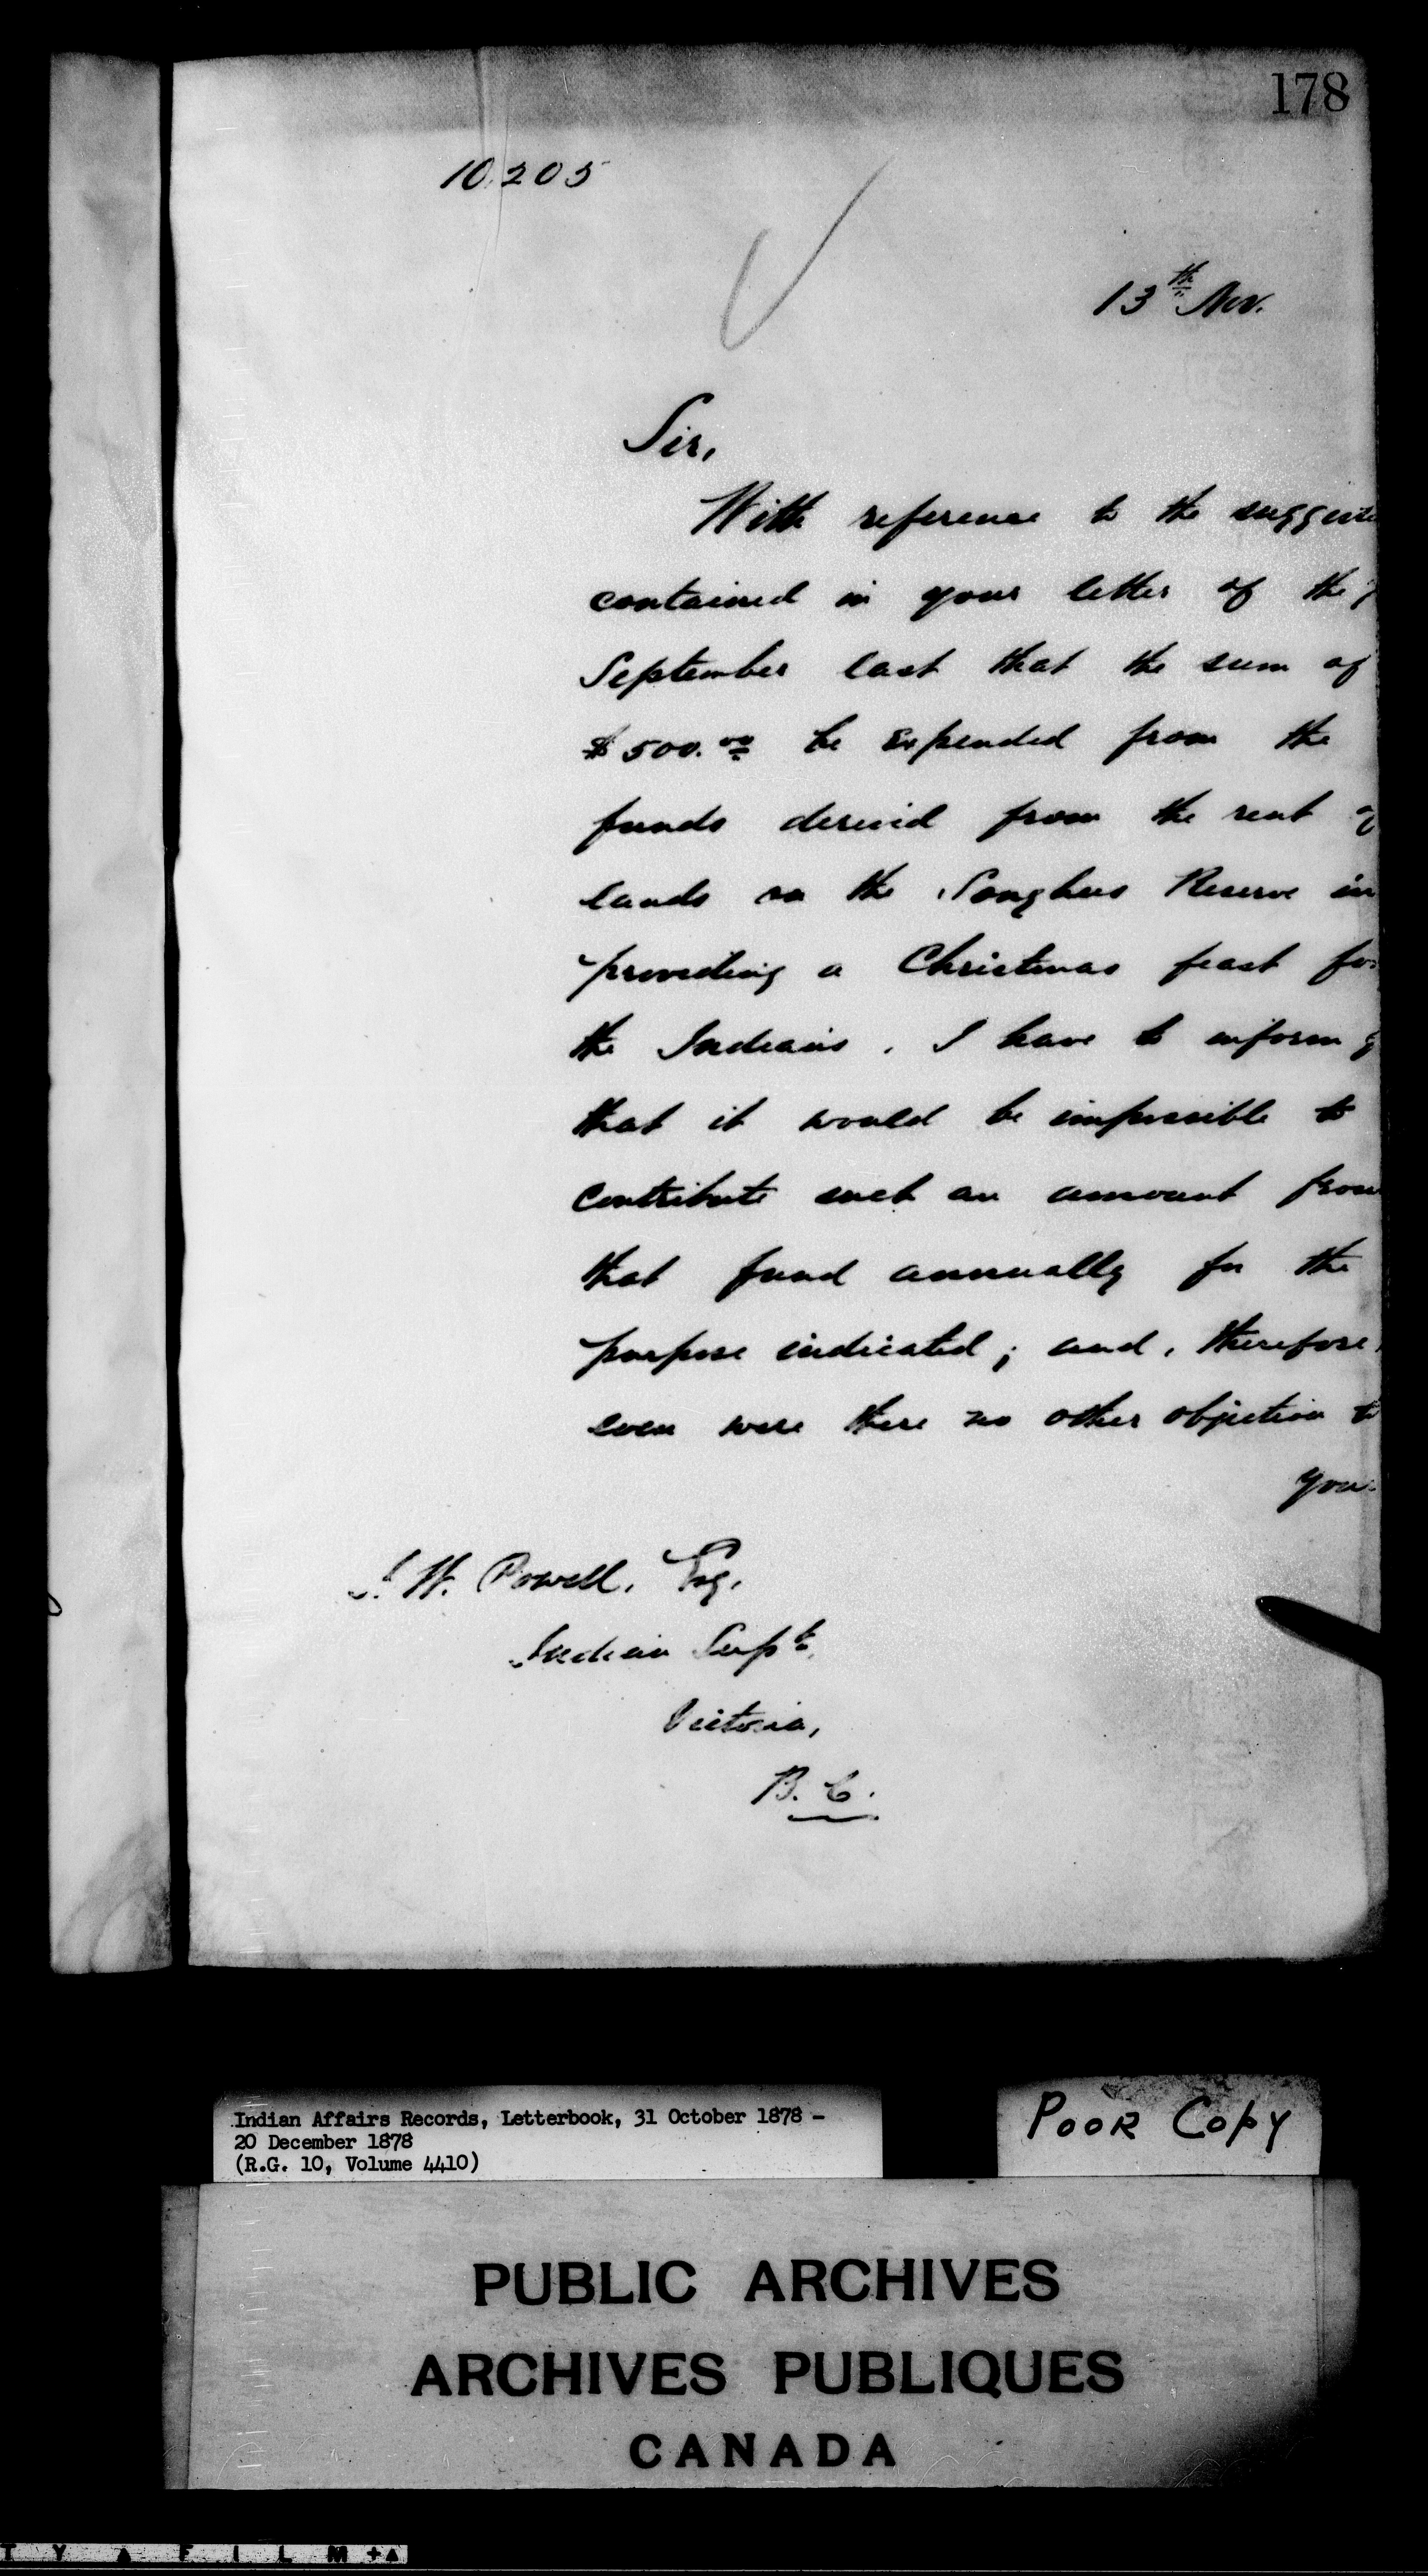 178
10,205
13th Nov.
Sir,
With reference to the
contained in your letter of the
September last that the sum of
$500.00 be Expended from the
funds derived from the rent of
lands on the Songhees Reserve in
providing a Christmas feast for
the Indians. I have to inform
that it would be impossible to
contribute such an amount from
that fund annually for the
purpose indicated; and, therefore,
even were there no other objection to
your
I. W. Powell, Esq.
Indian Supt.
Victoria,
B. C.
Indian Affairs Records, Letterbook, 31 October 1878 –
20 December 1878
(R.G. 10, Volume 4410)
POOR COPY
PUBLIC ARCHIVES
ARCHIVES PUBLIQUES
CANADA
T Y A F I L M